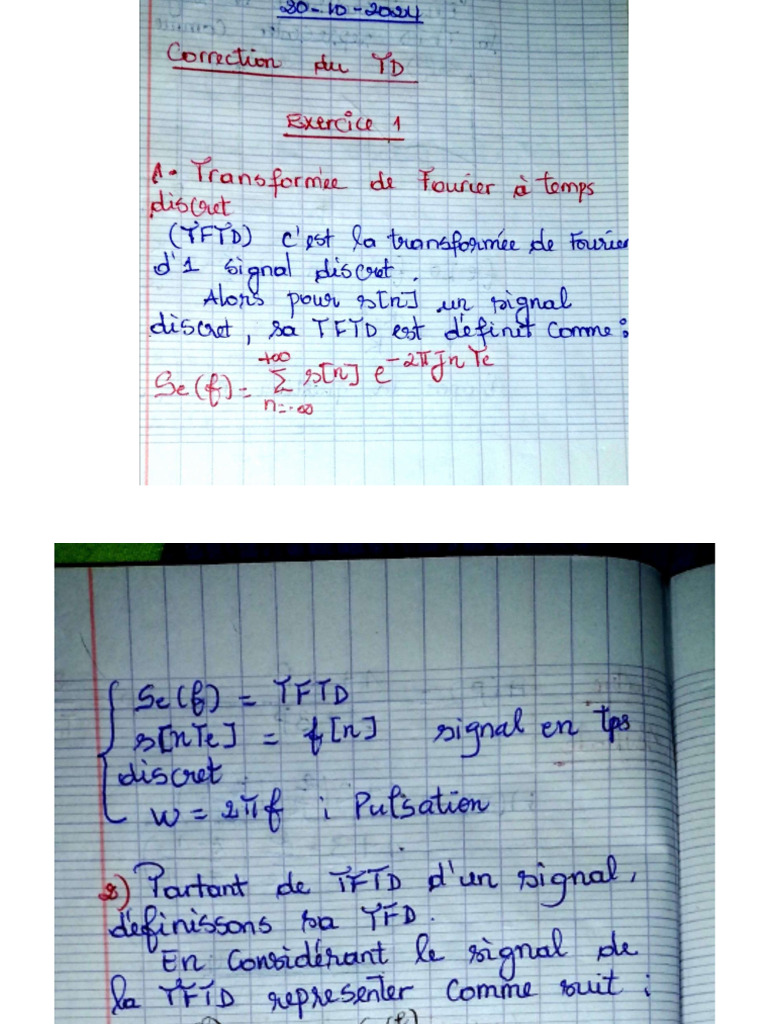 20-10-2024
Correction du TD
Exercice 1
1- Transformée de Fourier à temps
discret
(TFTD) c'est la transformée de Fourier
d'1 signal discret.
Alors pour s[n] un signal
discret, sa TFTD est définit comme :
Se(f) = +∞ Σ n=-∞ s[n] e^-2πJnTe
Se(f) = TFTD
s[nTe] = f[n] signal en tps
discret
w = 2πf ; Pulsation
2) Partant de TFTD d'un signal,
définissons sa TFD.
En Considérant le signal de
la TFTD representer comme suit :